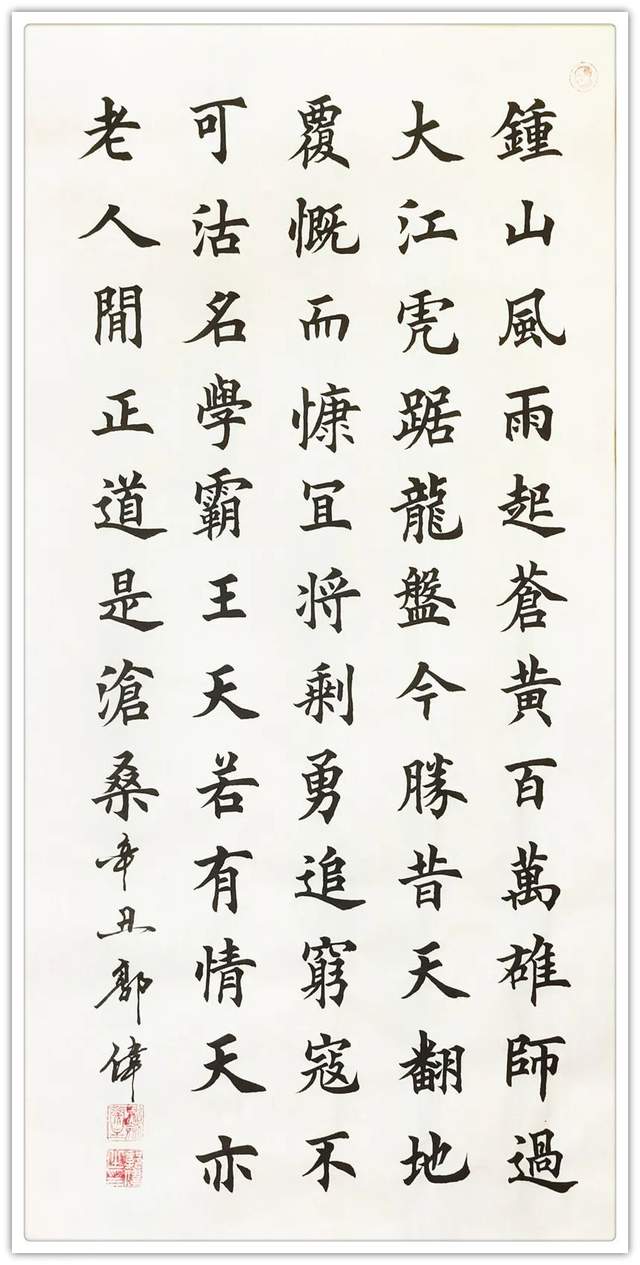 鍾山風雨起蒼黄百萬雄師過
大江虎踞龍盤今勝昔天翻地
覆慨而慷宜将剩勇追窮寇不
可沽名學霸王天若有情天亦
老人間正道是滄桑辛丑郭偉